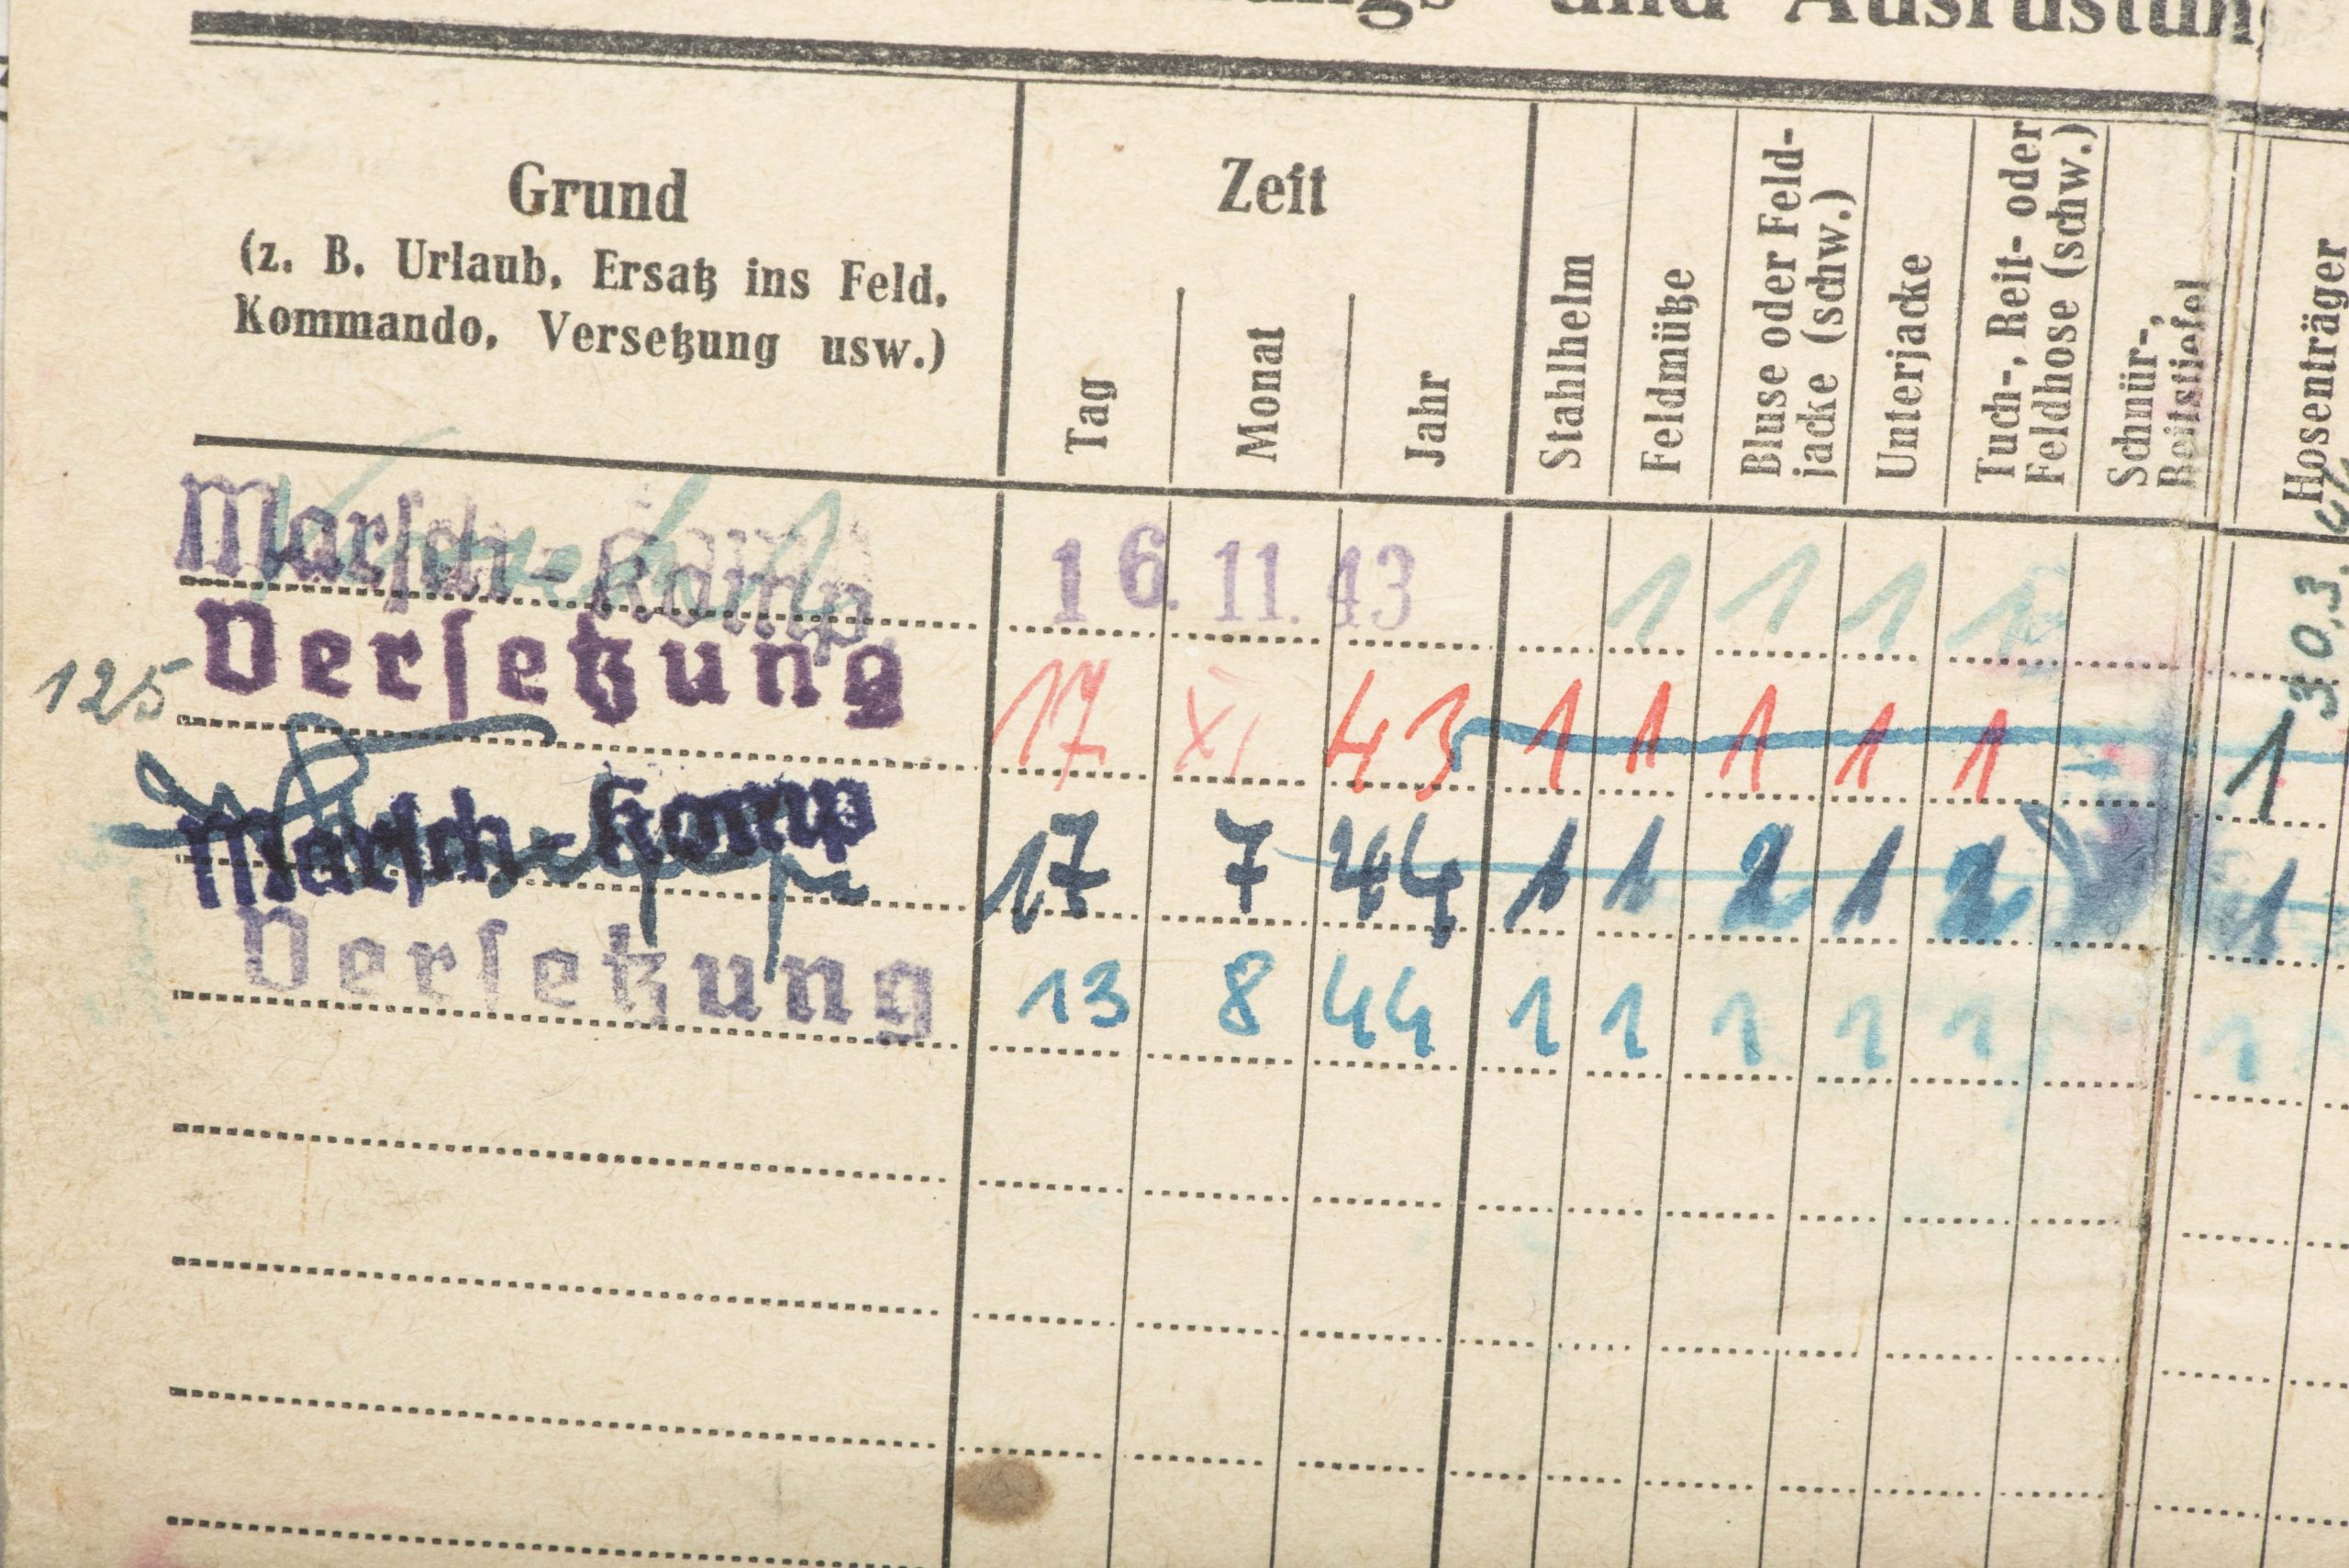 und Ausrüstun
Grund
(z. B. Urlaub, Ersatz ins Feld,
Kommando, Versetzung usw.)
Zeit
Tag
Monat
Jahr
Stahlhelm
Feldmütze
Bluse oder Feld-
jacke (schw.)
Unterjacke
Tuch-, Reit- oder
Feldhose (schw.)
Schnür-,
Reitstiefel
Hosenträger
Marsch-Komp. 16. 11. 43 1 1 1 1
30.3.
125 Versetzung 17 XI 43 1 1 1 1 1 1
Marsch-Komp 17 7 44 1 1 2 1 2 1
Versetzung 13 8 44 1 1 1 1 1 1